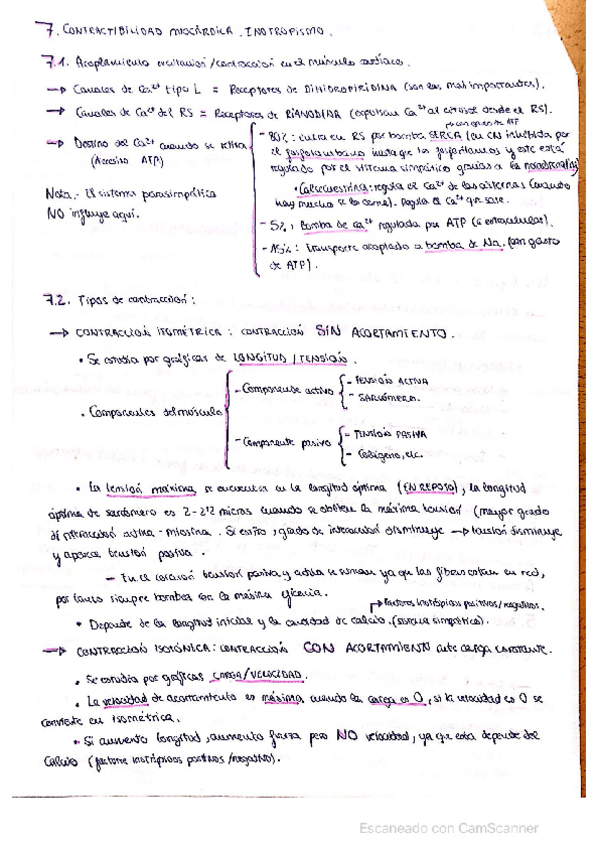 7. CONTRACTIBILIDAD MIOCÁRDICA. INOTROPISMO.
7.1. Acoplamiento excitación/contracción en el músculo cardiaco.
→ Canales de Ca²⁺ tipo L = Receptores de DIHIDROPIRIDINA (son los más importantes).
→ Canales de Ca²⁺ del RS = Receptores de RIANODINA (expulsan Ca²⁺ al citosol desde el RS).
→ Destino del Ca²⁺ cuando se retira
(Necesita ATP)
- 80%: entra en RS por bomba SERCA (en CN inhibida por
el fosfolambano hasta que los fosforilamos y este está
regulado por el sistema simpático gracias a la noradrenalina)
• Calsecuestrina: regula el Ca²⁺ de las cisternas (cuando
hay mucho se lo come). Regula el Ca²⁺ que sale.
- 5%: Bomba de Ca²⁺ regulada por ATP (a extracelular).
- 15%: Transporte acoplado a bomba de Na. (con gasto
de ATP).
Nota.- El sistema parasimpático
NO influye aquí.
7.2. Tipos de contracción:
→ CONTRACCIÓN ISOMÉTRICA: CONTRACCIÓN SIN ACORTAMIENTO.
• Se estudia por gráficas de LONGITUD/TENSIÓN.
• Componentes del músculo
- Componente activo
- TENSIÓN ACTIVA
- SARCÓMERO.
- Componente pasivo
- TENSIÓN PASIVA
- Colágeno, etc.
• La tensión máxima se encuentra en la longitud óptima (EN REPOSO), la longitud
óptima de sarcómero es 2-2'2 micras cuando se obtiene la máxima tensión (mayor grado
de interacción actina-miosina. Si estiro, grado de interacción disminuye → tensión disminuye
y aparece tensión pasiva.
- En el corazón tensión pasiva y activa se suman ya que las fibras están en red,
por tanto siempre bombea con la máxima eficacia.
→ Factores inotrópicos positivos/negativos.
• Depende de la longitud inicial y la cantidad de calcio. (sistema simpático).
→ CONTRACCIÓN ISOTÓNICA: CONTRACCIÓN CON ACORTAMIENTO ante carga constante.
• Se estudia por gráficas CARGA/VELOCIDAD.
• La velocidad de acortamiento es máxima, cuando la carga es 0, si la velocidad es 0 se
convierte en isométrica.
• Si aumento longitud, aumento fuerza pero NO velocidad, ya que esta depende del
calcio (factores inotrópicos positivos/negativos).
Escaneado con CamScanner